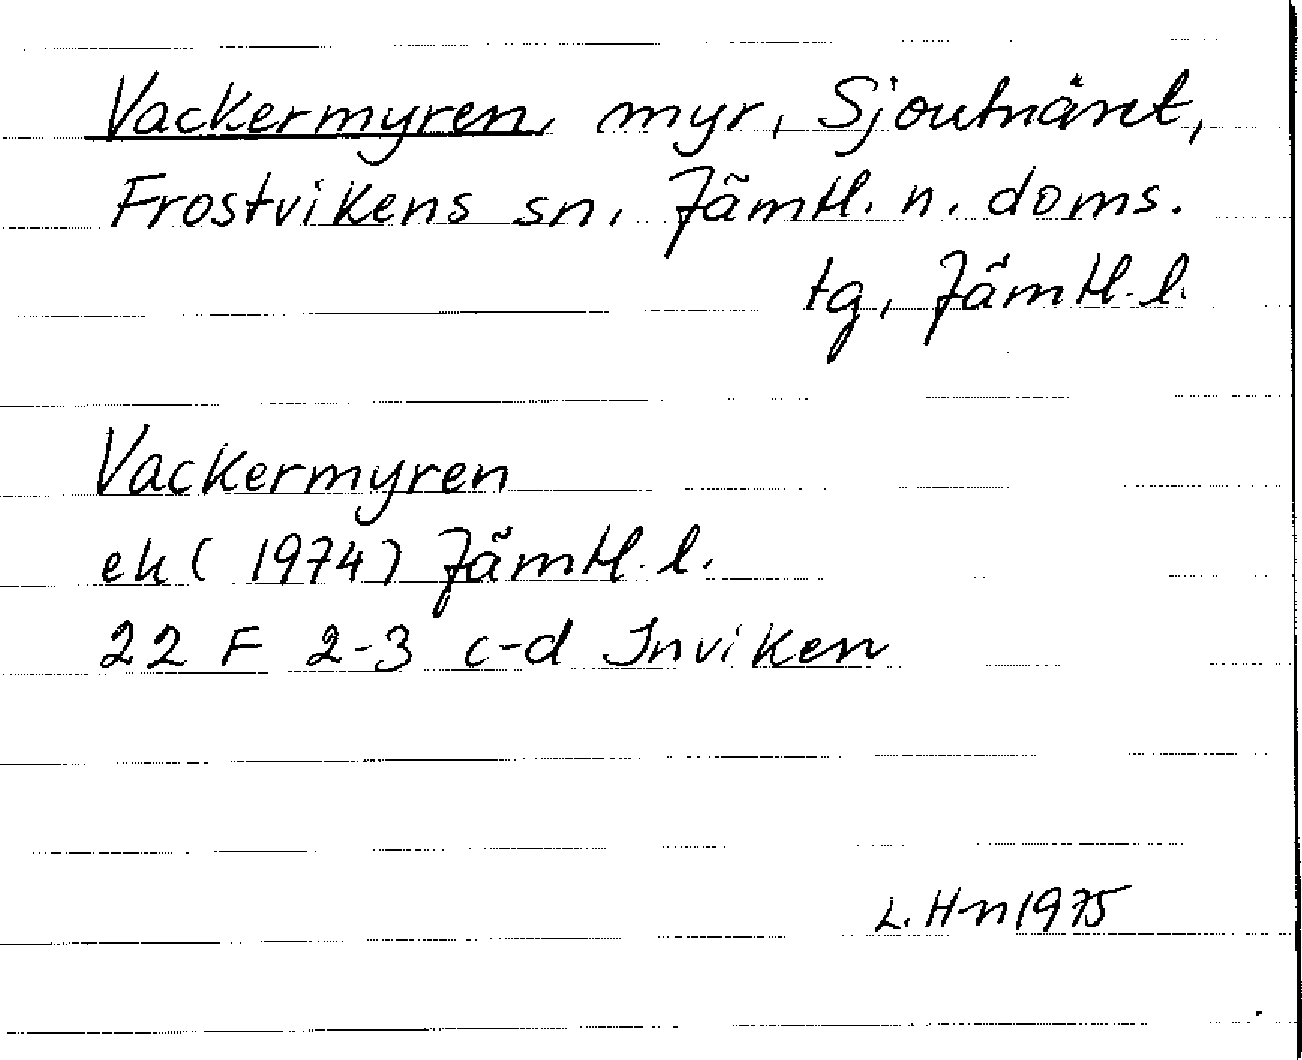 Vackermyren, myr, Sjoutnäset,
Frostvikens sn, Jämtl. n. doms.
tg, Jämtl. l.
Vackermyren
ek (1974) Jämtl. l.
22 F 2-3 c-d Inviken
L. Hn 1975